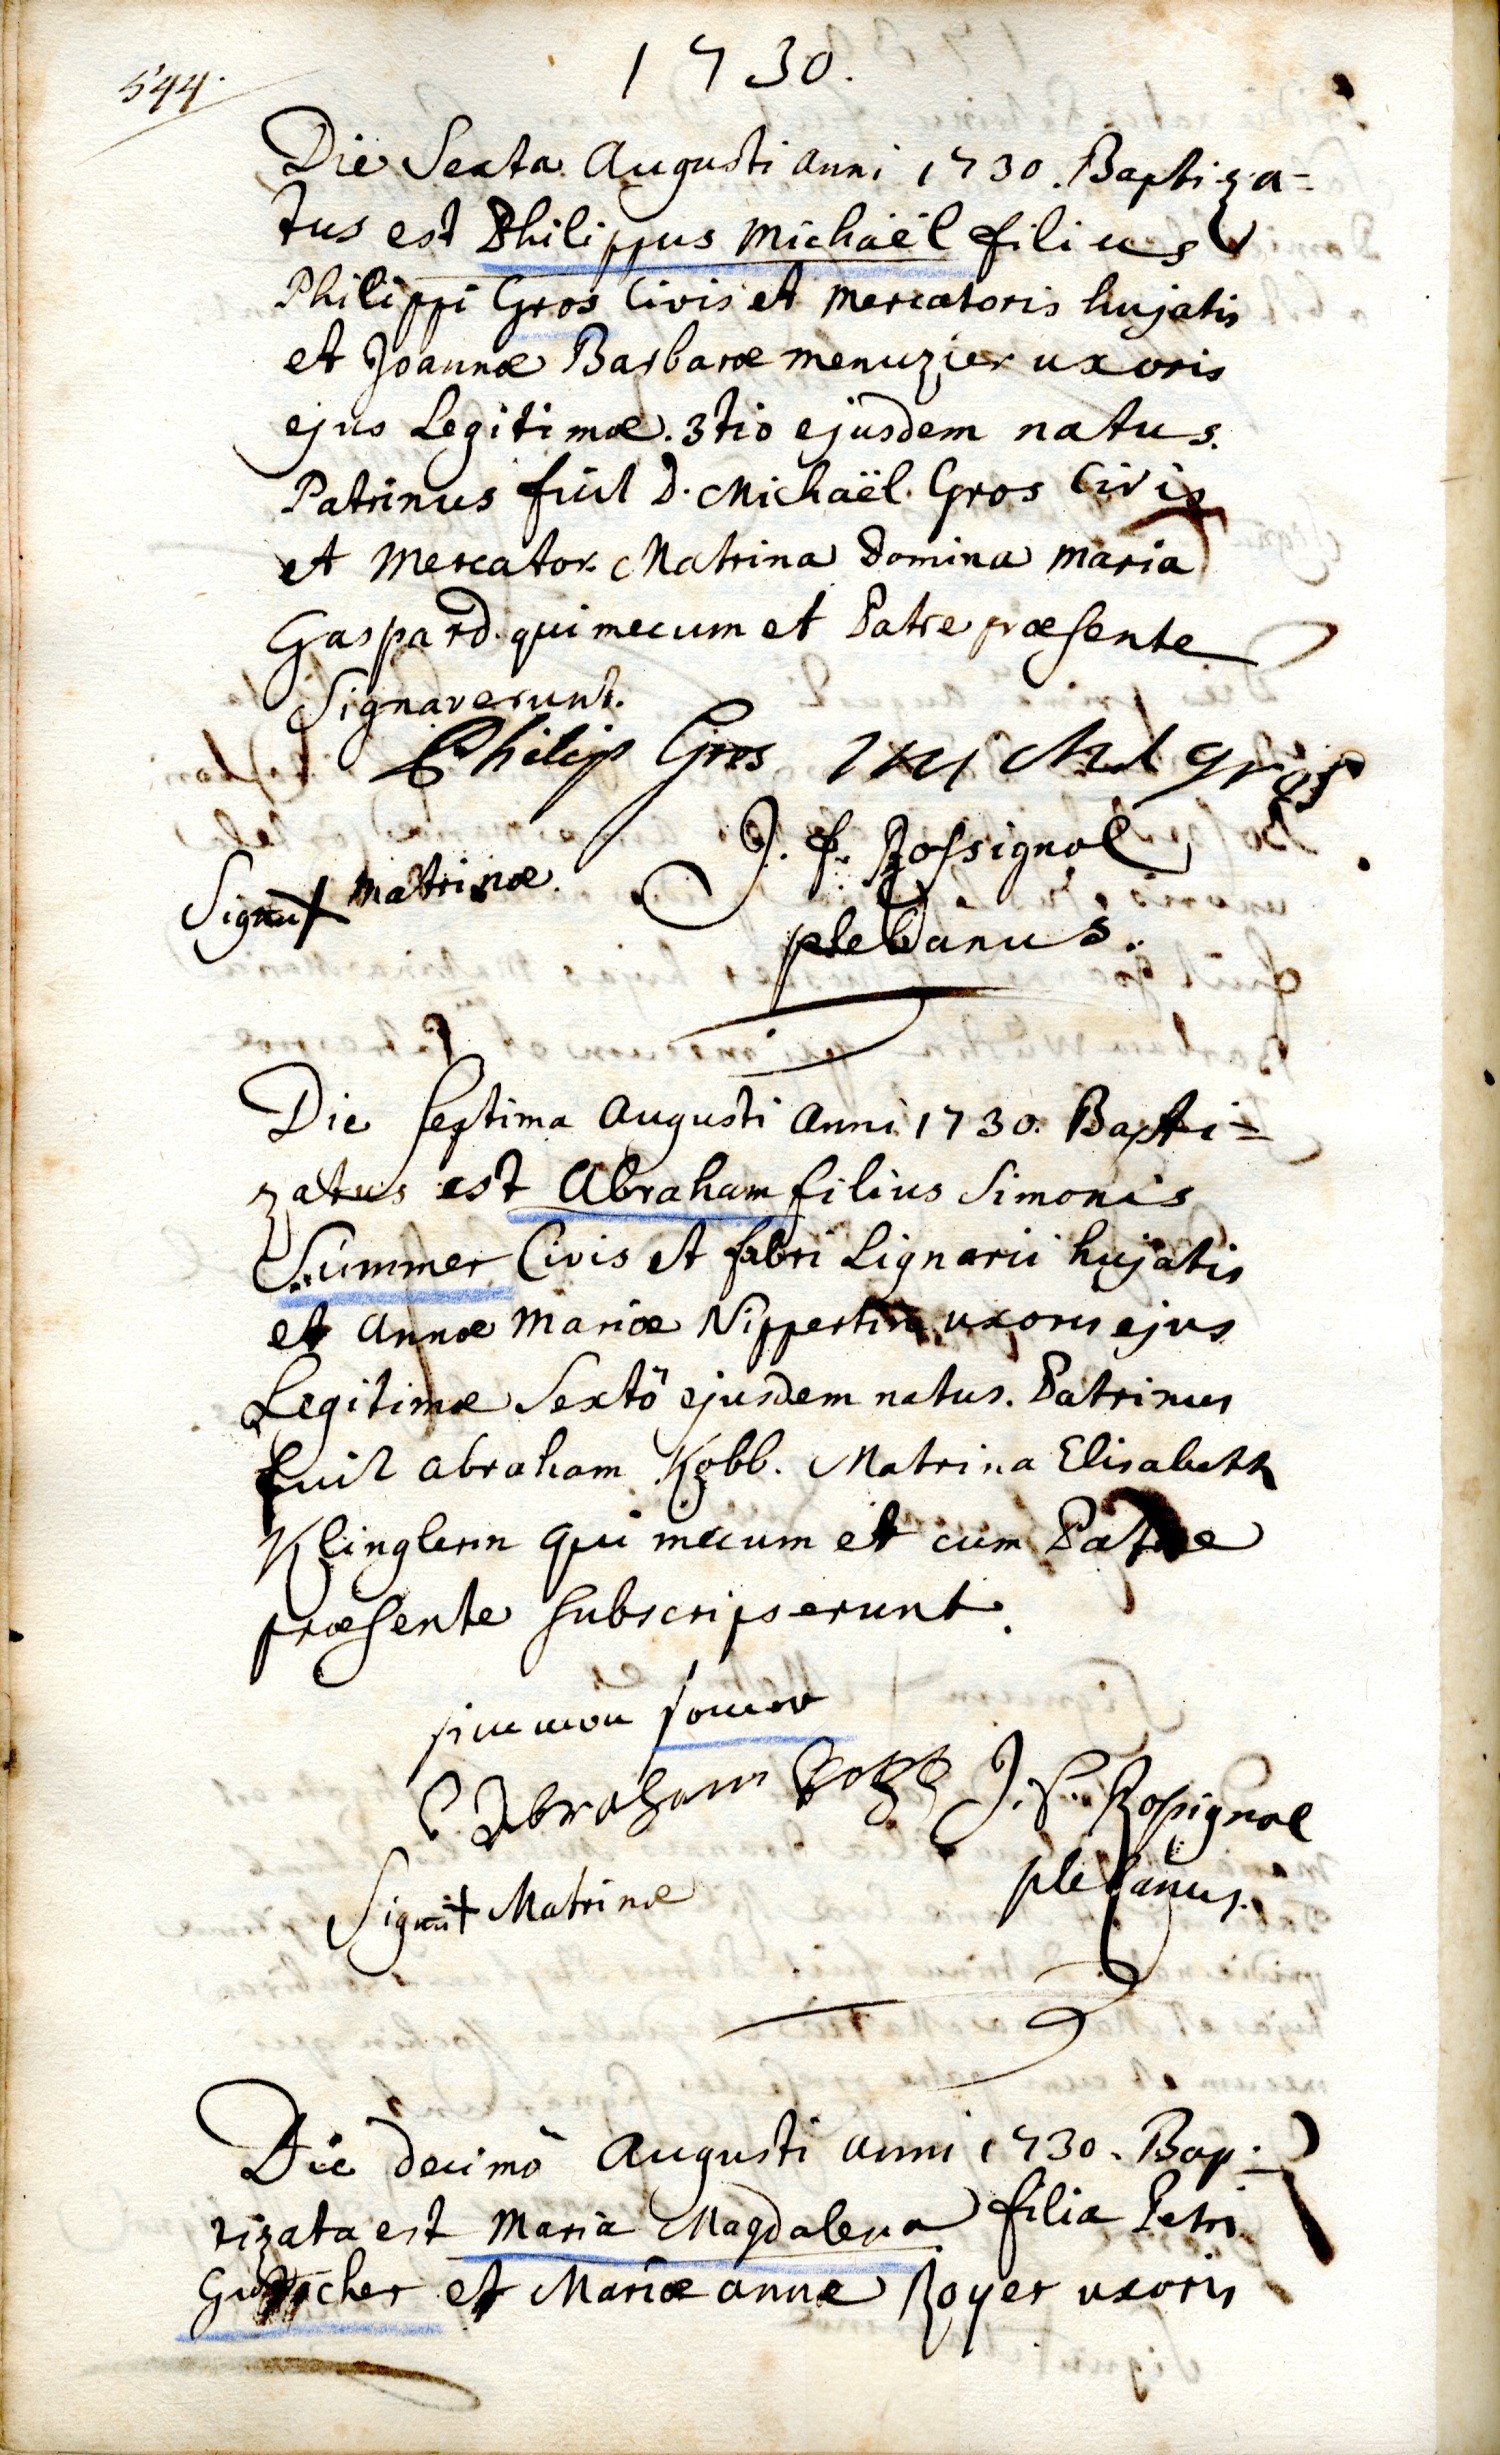 544.
1730.
Die Sexta Augusti anni 1730. Baptiza=
tus est Philippus Michaël filius
Philippi Gros Civis et mercatoris hujatis
et Joannæ Barbaræ menuzier uxoris
ejus Legitimæ. 3tio ejusdem natus.
Patrinus fuit D. Michaël Gros Civis
et Mercator. Matrina Domina Maria
Gaspard. qui mecum et Patre præsente
Signaverunt.
Philip Gros Michel gros
J. f. Rossignol
Signu+ matrinæ.
plebanus.
Die septima Augusti anni 1730. Bapti=
zatus est Abraham filius Simonis
Summer Civis et fabri Lignarii hujatis
et Annæ Mariæ Nippertin uxoris ejus
Legitimæ Sextö ejusdem natus. Patrinus
fuit Abraham Kobb. Matrina Elisabeth
Klinglerin qui mecum et cum Patre
præsente subscripserunt.
simmon somer
Abraham J. f. Rossignol
plebanus.
Signu+ Matrinæ
Die decimô Augusti anni 1730. Bap-
tizata est Maria Magdalena filia Petri
et Mariæ annæ Royer uxoris